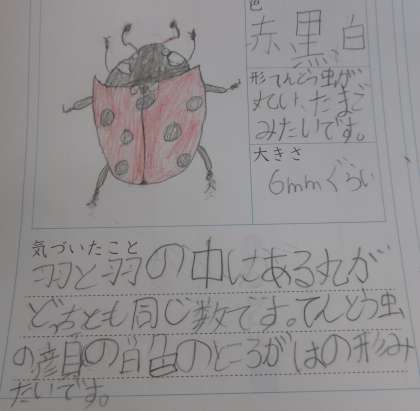 色
赤 黒 白
形てんとう虫が
丸い、たまご
みたいです。
大きさ
6mmぐらい
気づいたこと
羽と羽の中にある丸が
どっちとも同じ数です。てんとう虫
の顔の白色のところがはの形み
たいです。